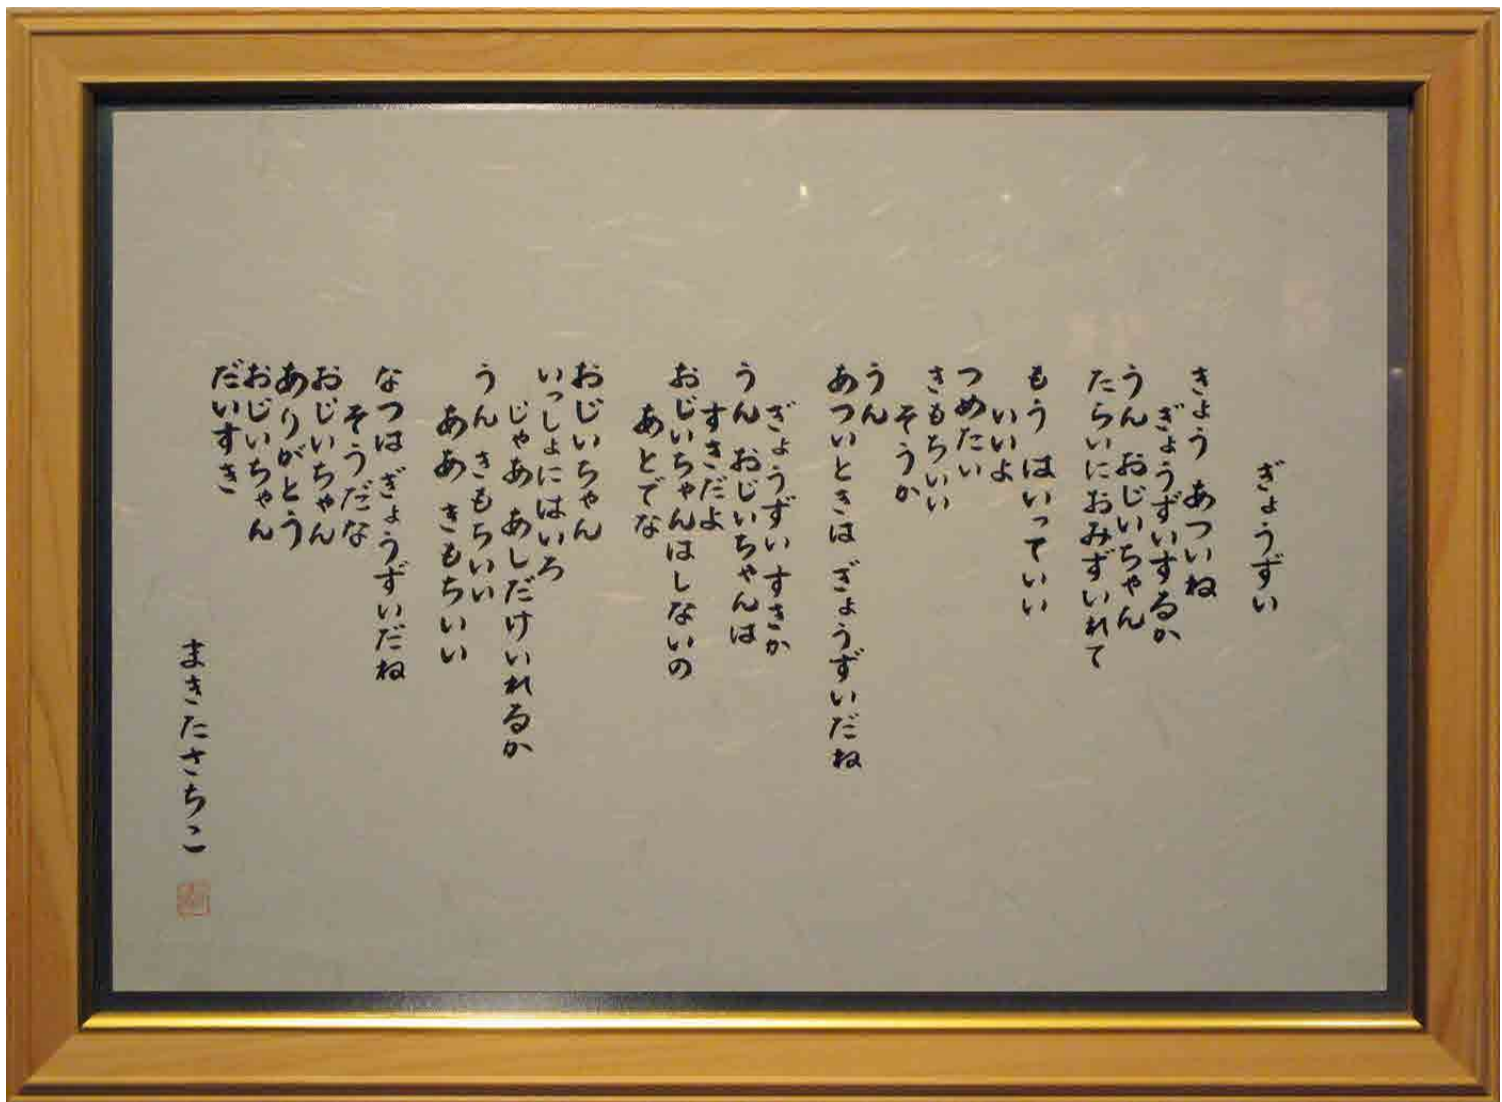 ぎょうずい
きょう あついね
ぎょうずいするか
うん おじいちゃん
たらいにおみずいれて
もう はいっていい
いいよ
つめたい
きもちいい
そうか
うん
あついときは ぎょうずいだね
ぎょうずいすきか
うん おじいちゃんは
すきだよ
おじいちゃんはしないの
あとでな
おじいちゃん
いっしょにはいろ
じゃあ あしだけいれるか
うん きもちいい
ああ きもちいい
なつは ぎょうずいだね
そうだな
おじいちゃん
ありがとう
おじいちゃん
だいすき
まきたさちこ